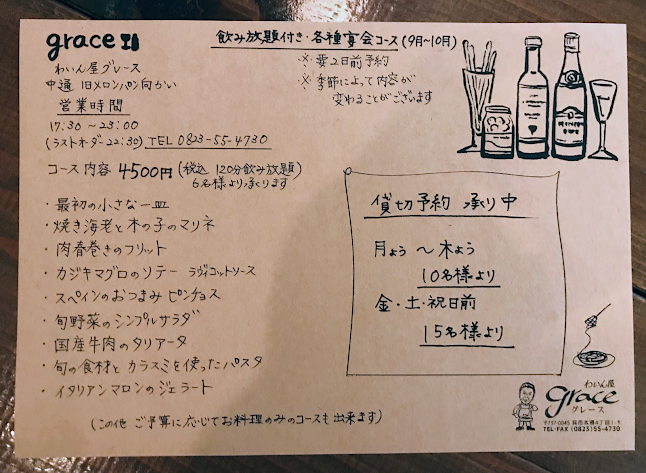 grace
わいん屋グレース
中通 旧メロンパン向かい
営業時間
17:30 ～23:00
(ラストオーダー22:30) TEL 0823-55-4730
飲み放題付き・各種宴会コース(9月～10月)
※ 要2日前予約
※ 季節によって内容が
変わることがございます
コース内容 4500円 (税込 120分飲み放題)
6名様より承ります
・最初の小さな一皿
・焼き海老と木の子のマリネ
・肉春巻きのフリット
・カジキマグロのソテー ラヴィゴットソース
・スペインのおつまみ ピンチョス
・旬野菜のシンプルサラダ
・国産牛肉のタリアータ
・旬の食材と カラスミを使ったパスタ
・イタリアンマロンのジェラート
(この他 ご予算に応じてお料理のみのコースも出来ます)
貸切予約 承り中
月よう ～ 木よう
10名様より
金・土・祝日前
15名様より
わいん屋
grace
グレース
〒737-0045 呉市本通4丁目1-5
TEL・FAX (0823)55-4730